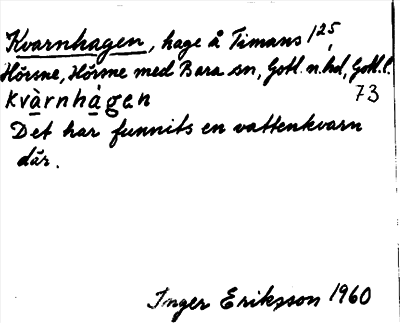 Kvarnhagen, hage å Timans 1²⁵,
Hörsne, Hörsne med Bara sn, Gotl. n. hd, Gotl. l.
kvàrnhàgen 73
Det har funnits en vattenkvarn
där.
Inger Eriksson 1960